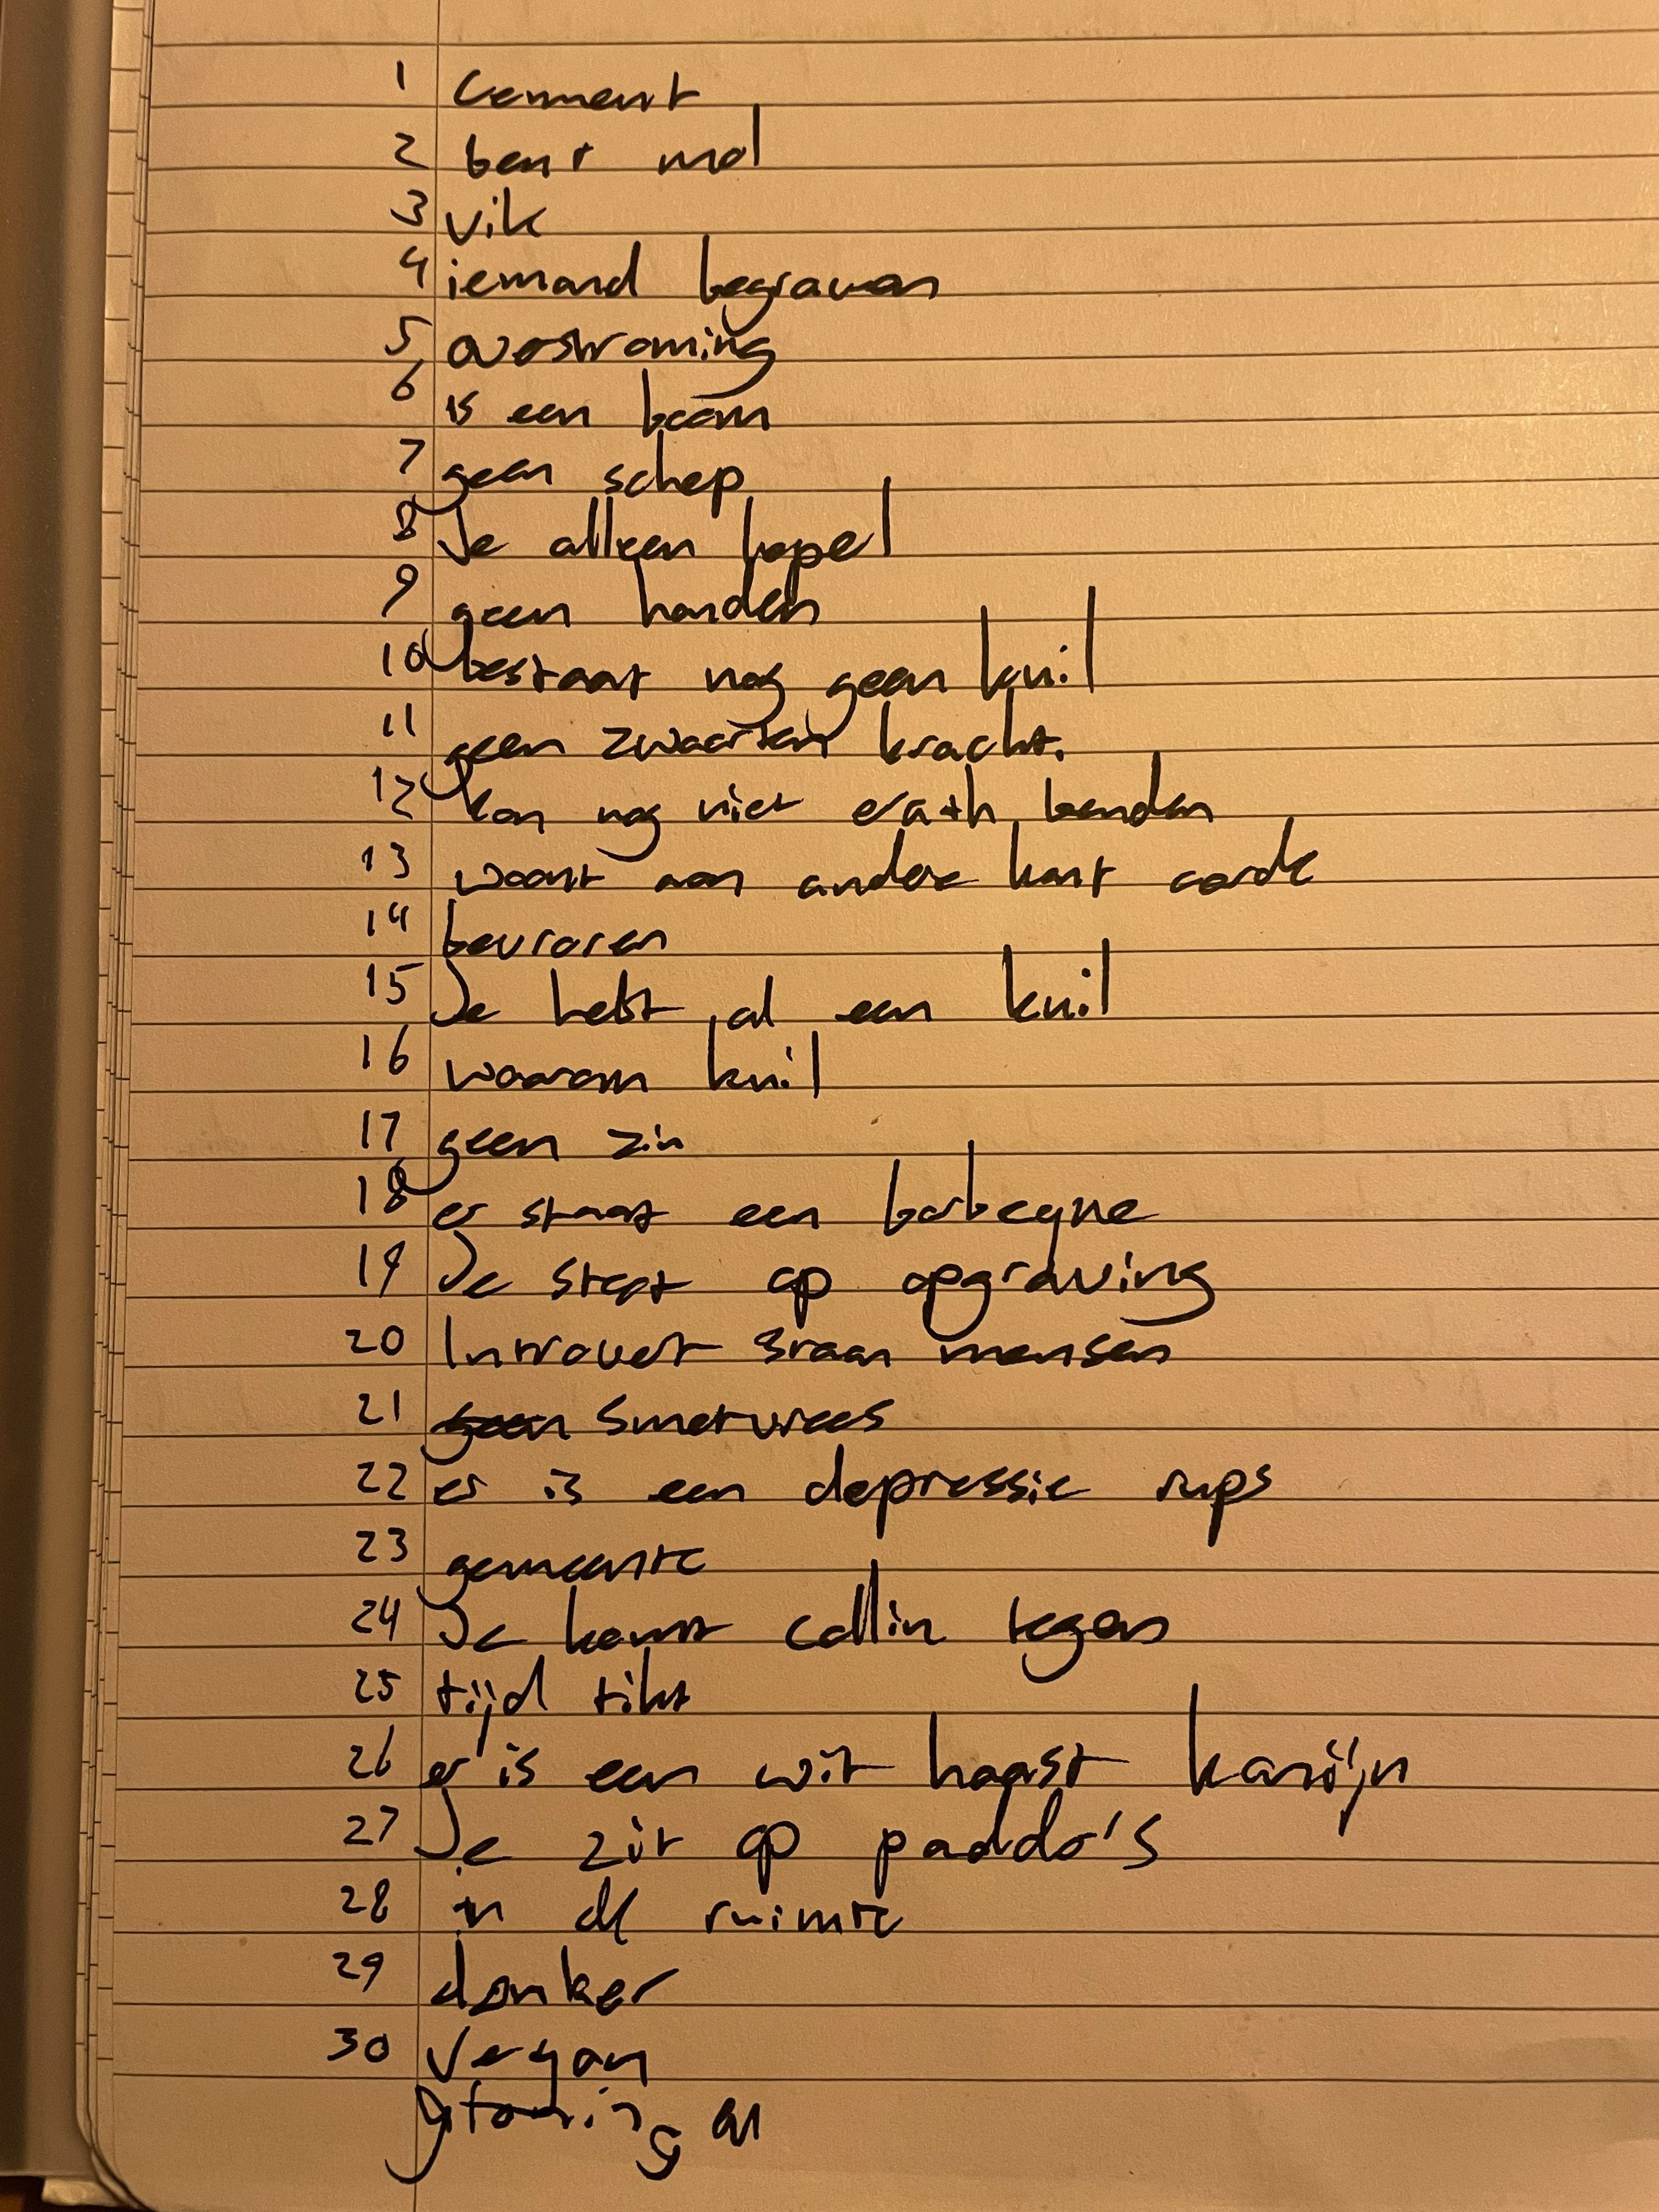 1 Cement
2 bent mol
3 vik
4 iemand begraven
5 overstroming
6 is een boom
7 geen schep
8 Je alleen lepel
9 geen handen
10 bestaat nog geen kuil
11 geen zwaarte kracht.
12 kan nog niet earth benden
13 woont aan andere kant aarde
14 bevroren
15 Je hebt al een kuil
16 waarom kuil
17 geen zin
18 er staat een barbeque
19 Je stapt op opgraving
20 Introvert staan mensen
21 smetvrees
22 er is een depressie rups
23 gemeente
24 Je komt collin tegen
25 tijd tikt
26 er is een wit haast konijn
27 Je zit op paddo's
28 in de ruimte
29 donker
30 Vegan